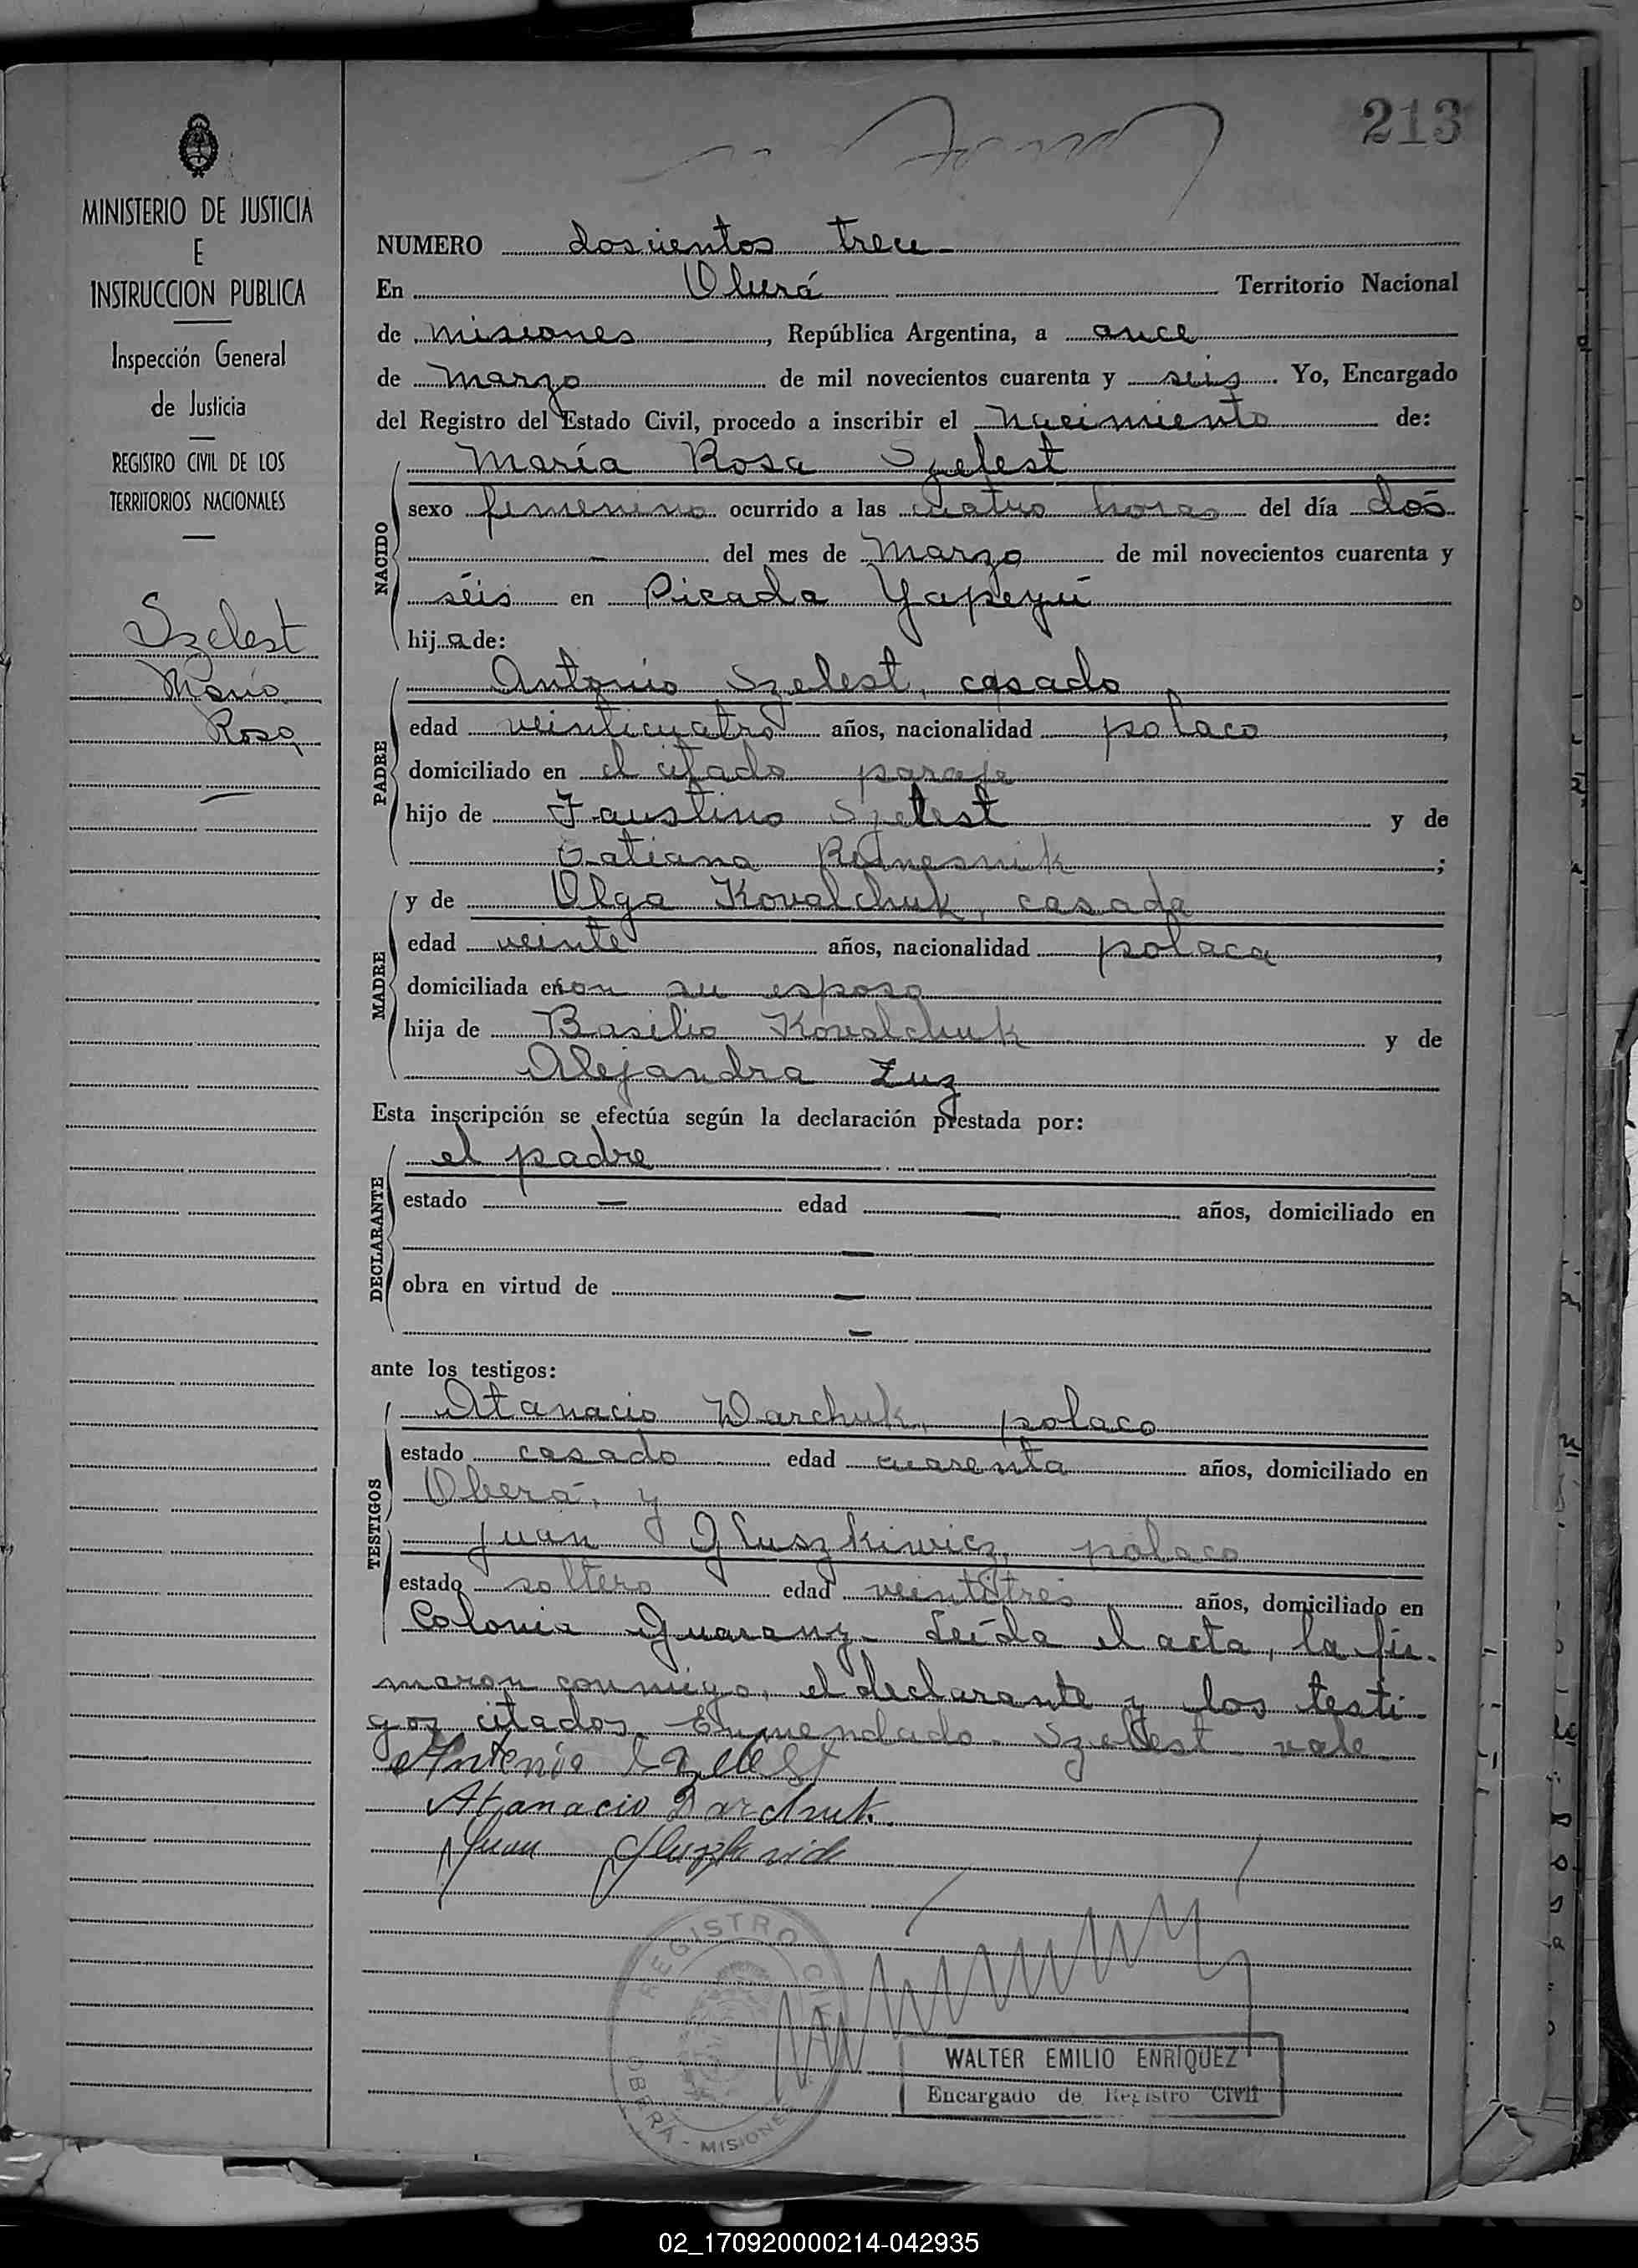 213
MINISTERIO DE JUSTICIA
E
INSTRUCCION PUBLICA
Inspección General
de Justicia
REGISTRO CIVIL DE LOS
TERRITORIOS NACIONALES
Szelest
María
Rosa
NUMERO doscientos trece
En Oberá Territorio Nacional
de misiones, República Argentina, a once
de marzo de mil novecientos cuarenta y seis. Yo, Encargado
del Registro del Estado Civil, procedo a inscribir el nacimiento de:
María Rosa Szelest
NACIDO
sexo femenino ocurrido a las cuatro horas del día dos
del mes de marzo de mil novecientos cuarenta y
séis en Picada Yapeyú
hija de:
Antonio Szelest, casado
PADRE
edad veinticuatro años, nacionalidad polaco,
domiciliado en el citado paraje
hijo de Faustino Szelest y de
Tatiana ;
y de Olga Kovalchuk, casada
MADRE
edad veinte años, nacionalidad polaca,
domiciliada con su esposo
hija de Basilio Kovalchuk y de
Alejandra Zuz
Esta inscripción se efectúa según la declaración prestada por:
el padre
DECLARANTE
estado — edad — años, domiciliado en
—
obra en virtud de —
—
ante los testigos:
Atanacio Darchuk, polaco
TESTIGOS
estado casado edad cuarenta años, domiciliado en
Oberá, y
Juan Gluszkiwicz, polaco
estado soltero edad veintitres años, domiciliado en
Colonia Guarany. Leída el acta, la fir-
maron conmigo, el declarante y los testi-
gos citados. Enmendado. Szelest vale
Antonio Szelest
Atanacio Darchuk.
Juan
REGISTRO CIVIL
OBERÁ - MISIONES
WALTER EMILIO ENRIQUEZ
Encargado de Registro Civil
02_170920000214-042935